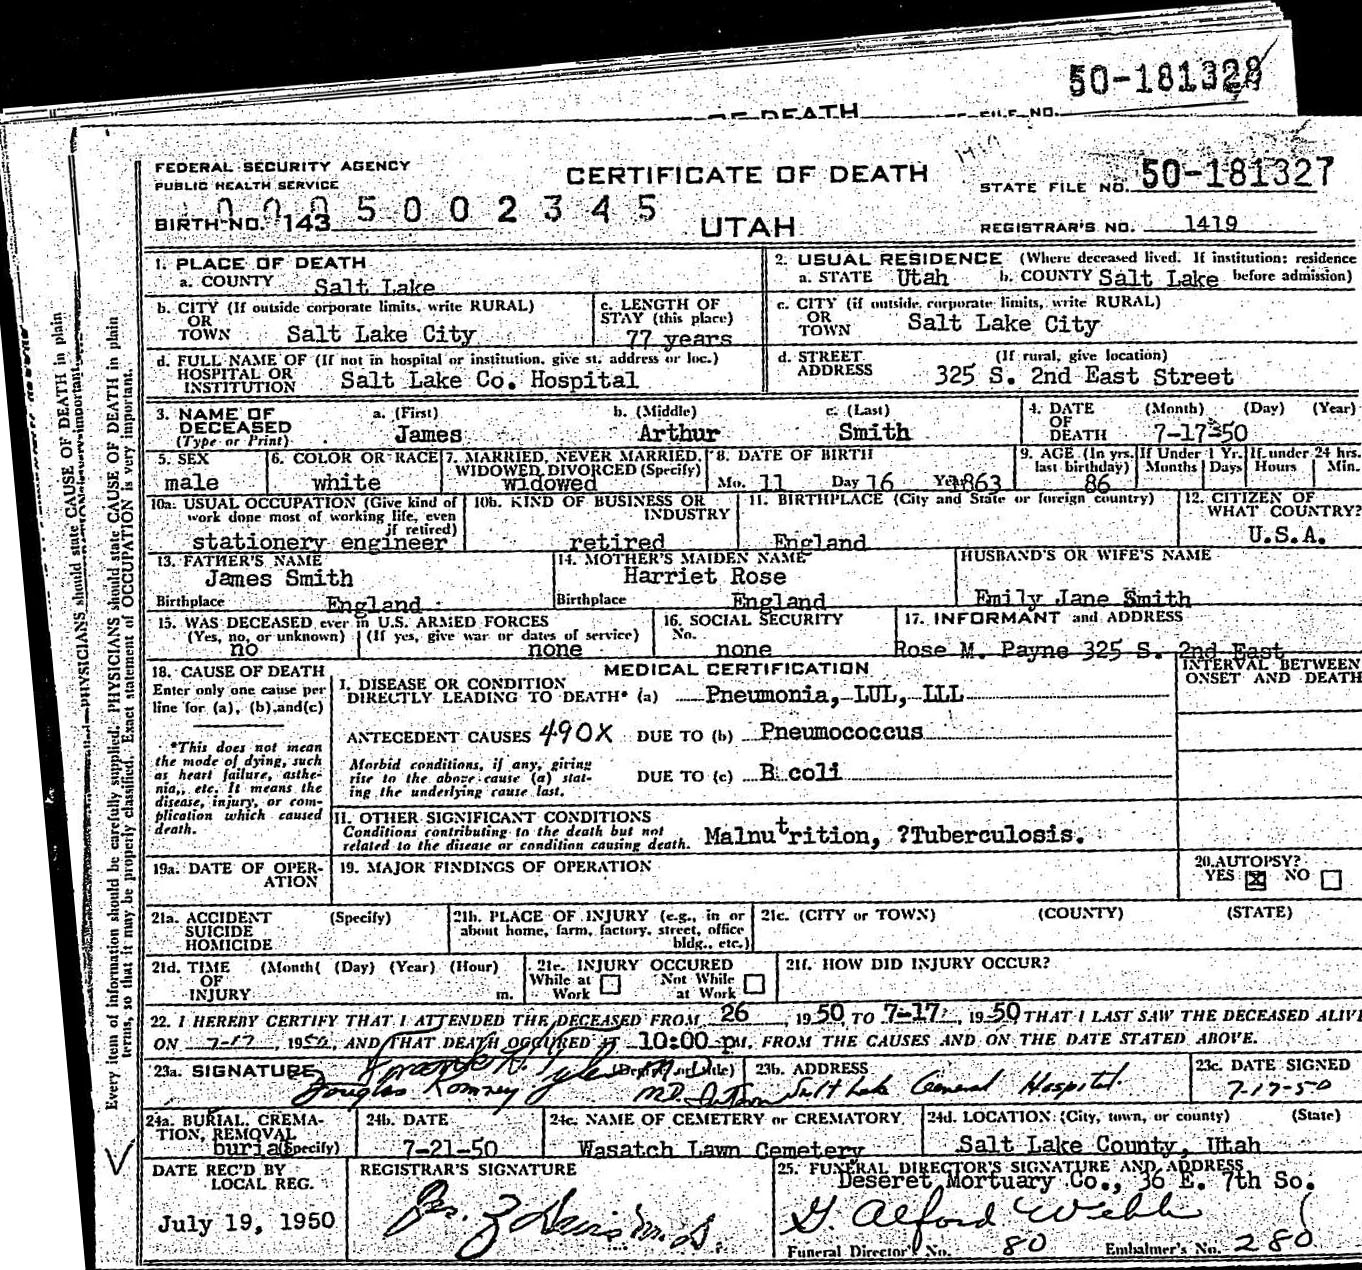 50-181328
OF DEATH FILE NO.
FEDERAL SECURITY AGENCY
PUBLIC HEALTH SERVICE
CERTIFICATE OF DEATH
STATE FILE NO. 50-181327
0005002345
BIRTH NO. 143
UTAH
REGISTRAR'S NO. 1419
1. PLACE OF DEATH
a. COUNTY Salt Lake
2. USUAL RESIDENCE (Where deceased lived. If institution: residence
a. STATE Utah b. COUNTY Salt Lake before admission)
b. CITY (If outside corporate limits, write RURAL)
OR
TOWN Salt Lake City
c. LENGTH OF
STAY (this place)
77 years
c. CITY (if outside corporate limits, write RURAL)
OR
TOWN Salt Lake City
d. FULL NAME OF (If not in hospital or institution, give st. address or loc.)
HOSPITAL OR
INSTITUTION Salt Lake Co. Hospital
d. STREET (If rural, give location)
ADDRESS 325 S. 2nd East Street
3. NAME OF a. (First) b. (Middle) c. (Last)
DECEASED
(Type or Print) James Arthur Smith
4. DATE (Month) (Day) (Year)
OF
DEATH 7-17-50
5. SEX
male
6. COLOR OR RACE
white
7. MARRIED, NEVER MARRIED,
WIDOWED, DIVORCED (Specify)
widowed
8. DATE OF BIRTH
Mo. 11 Day 16 Yr. 1863
9. AGE (In yrs. last birthday)
86
If Under 1 Yr.
Months Days
If under 24 hrs.
Hours Min.
10a. USUAL OCCUPATION (Give kind of
work done most of working life, even
if retired)
stationery engineer
10b. KIND OF BUSINESS OR
INDUSTRY
retired
11. BIRTHPLACE (City and State or foreign country)
England
12. CITIZEN OF
WHAT COUNTRY?
U.S.A.
13. FATHER'S NAME
James Smith
Birthplace England
14. MOTHER'S MAIDEN NAME
Harriet Rose
Birthplace England
HUSBAND'S OR WIFE'S NAME
Emily Jane Smith
15. WAS DECEASED ever in U.S. ARMED FORCES
(Yes, no, or unknown) (If yes, give war or dates of service)
no none
16. SOCIAL SECURITY
No.
none
17. INFORMANT and ADDRESS
Rose M. Payne 325 S. 2nd East
18. CAUSE OF DEATH
Enter only one cause per
line for (a), (b), and (c)
*This does not mean
the mode of dying, such
as heart failure, asthe-
nia, etc. It means the
disease, injury, or com-
plication which caused
death.
MEDICAL CERTIFICATION
INTERVAL BETWEEN
ONSET AND DEATH
I. DISEASE OR CONDITION
DIRECTLY LEADING TO DEATH* (a) Pneumonia, LUL, LLL
ANTECEDENT CAUSES 490X DUE TO (b) Pneumococcus
Morbid conditions, if any, giving
rise to the above cause (a) stat-
ing the underlying cause last.
DUE TO (c) B coli
II. OTHER SIGNIFICANT CONDITIONS
Conditions contributing to the death but not
related to the disease or condition causing death.
Malnutrition, ?Tuberculosis.
19a. DATE OF OPER-
ATION
19. MAJOR FINDINGS OF OPERATION
20. AUTOPSY?
YES NO
21a. ACCIDENT (Specify)
SUICIDE
HOMICIDE
21b. PLACE OF INJURY (e.g., in or
about home, farm, factory, street, office
bldg., etc.)
21c. (CITY or TOWN) (COUNTY) (STATE)
21d. TIME (Month( (Day) (Year) (Hour)
OF
INJURY m.
21e. INJURY OCCURED
While at Not While
Work at Work
21f. HOW DID INJURY OCCUR?
22. I HEREBY CERTIFY THAT I ATTENDED THE DECEASED FROM 26, 1950, TO 7-17, 1950 THAT I LAST SAW THE DECEASED ALIVE
ON 7-17, 1950, AND THAT DEATH OCCURRED AT 10:00 pm. FROM THE CAUSES AND ON THE DATE STATED ABOVE.
23a. SIGNATURE Frank H. Tyler M.D. (Degree or title)
Douglas Romney M.D. Intern
23b. ADDRESS
Salt Lake General Hospital
23c. DATE SIGNED
7-17-50
24a. BURIAL, CREMA-
TION, REMOVAL
burial (Specify)
24b. DATE
7-21-50
24c. NAME OF CEMETERY or CREMATORY
Wasatch Lawn Cemetery
24d. LOCATION (City, town, or county) (State)
Salt Lake County, Utah
DATE REC'D BY
LOCAL REG.
July 19, 1950
REGISTRAR'S SIGNATURE
25. FUNERAL DIRECTOR'S SIGNATURE AND ADDRESS
Deseret Mortuary Co., 36 E. 7th So.
G. Alford Webb
Funeral Director's No. 80 Embalmer's No. 280
Every item of information should be carefully supplied. PHYSICIANS should state CAUSE OF DEATH in plain
terms, so that it may be properly classified. Exact statement of OCCUPATION is very important.
PHYSICIANS should state CAUSE OF DEATH in plain